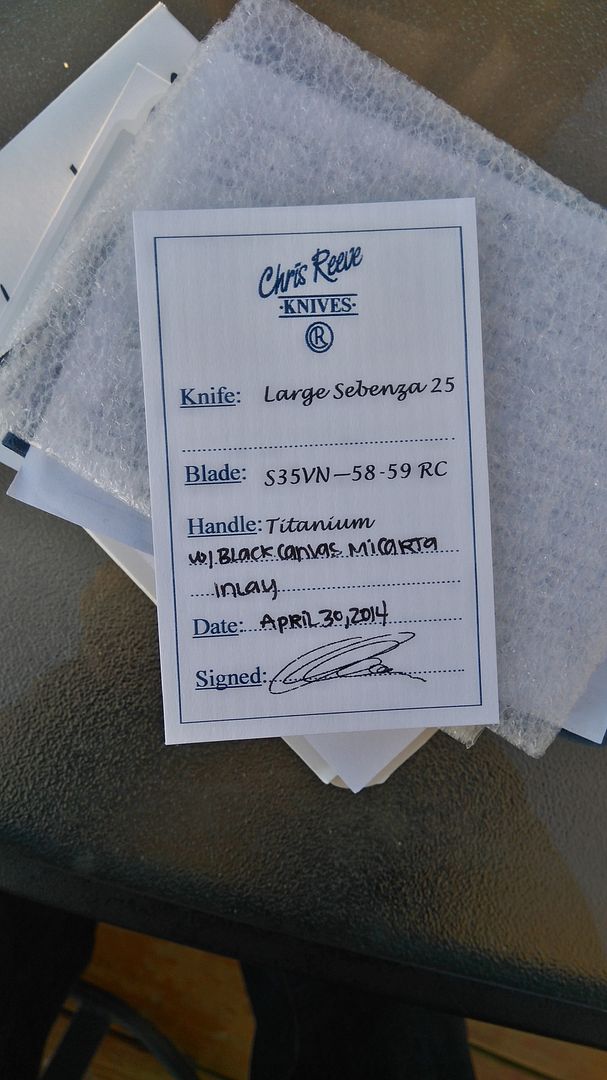 Chris Reeve
·KNIVES·
®
Knife: Large Sebenza 25
Blade: S35VN—58-59 RC
Handle: Titanium
w/ Black Canvas Micarta
inlay
Date: April 30, 2014
Signed: